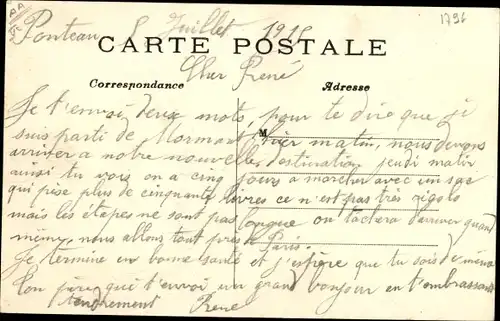 1796
Ponteau 8 Juillet 1915
CARTE POSTALE
Cher René
Correspondance
Adresse
Je t'envoi deux mots, pour te dire que je
suis parti de Mormant hier matin, nous devons
M
arriver a notre nouvelle destination jeudi matin
ainsi tu vois on a cinq jours a marcher avec un sac
qui pèse plus de cinquante livres ce n'est pas très rigolo
mais les étapes ne sont pas longue on tachera d'arriver quand
même, nous allons tout près de Paris.
Je termine en bonne santé et j'espère que tu sois de même
Ton père qui t'envoi un grand bonjour en t'embrassant
tendrement René